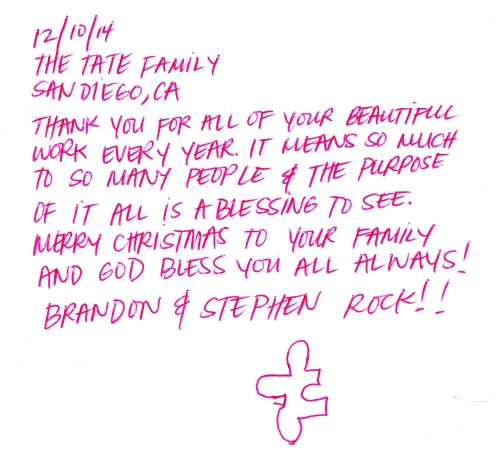 12/10/14
THE TATE FAMILY
SAN DIEGO, CA
THANK YOU FOR ALL OF YOUR BEAUTIFUL
WORK EVERY YEAR. IT MEANS SO MUCH
TO SO MANY PEOPLE & THE PURPOSE
OF IT ALL IS A BLESSING TO SEE.
MERRY CHRISTMAS TO YOUR FAMILY
AND GOD BLESS YOU ALL ALWAYS!
BRANDON & STEPHEN ROCK!!